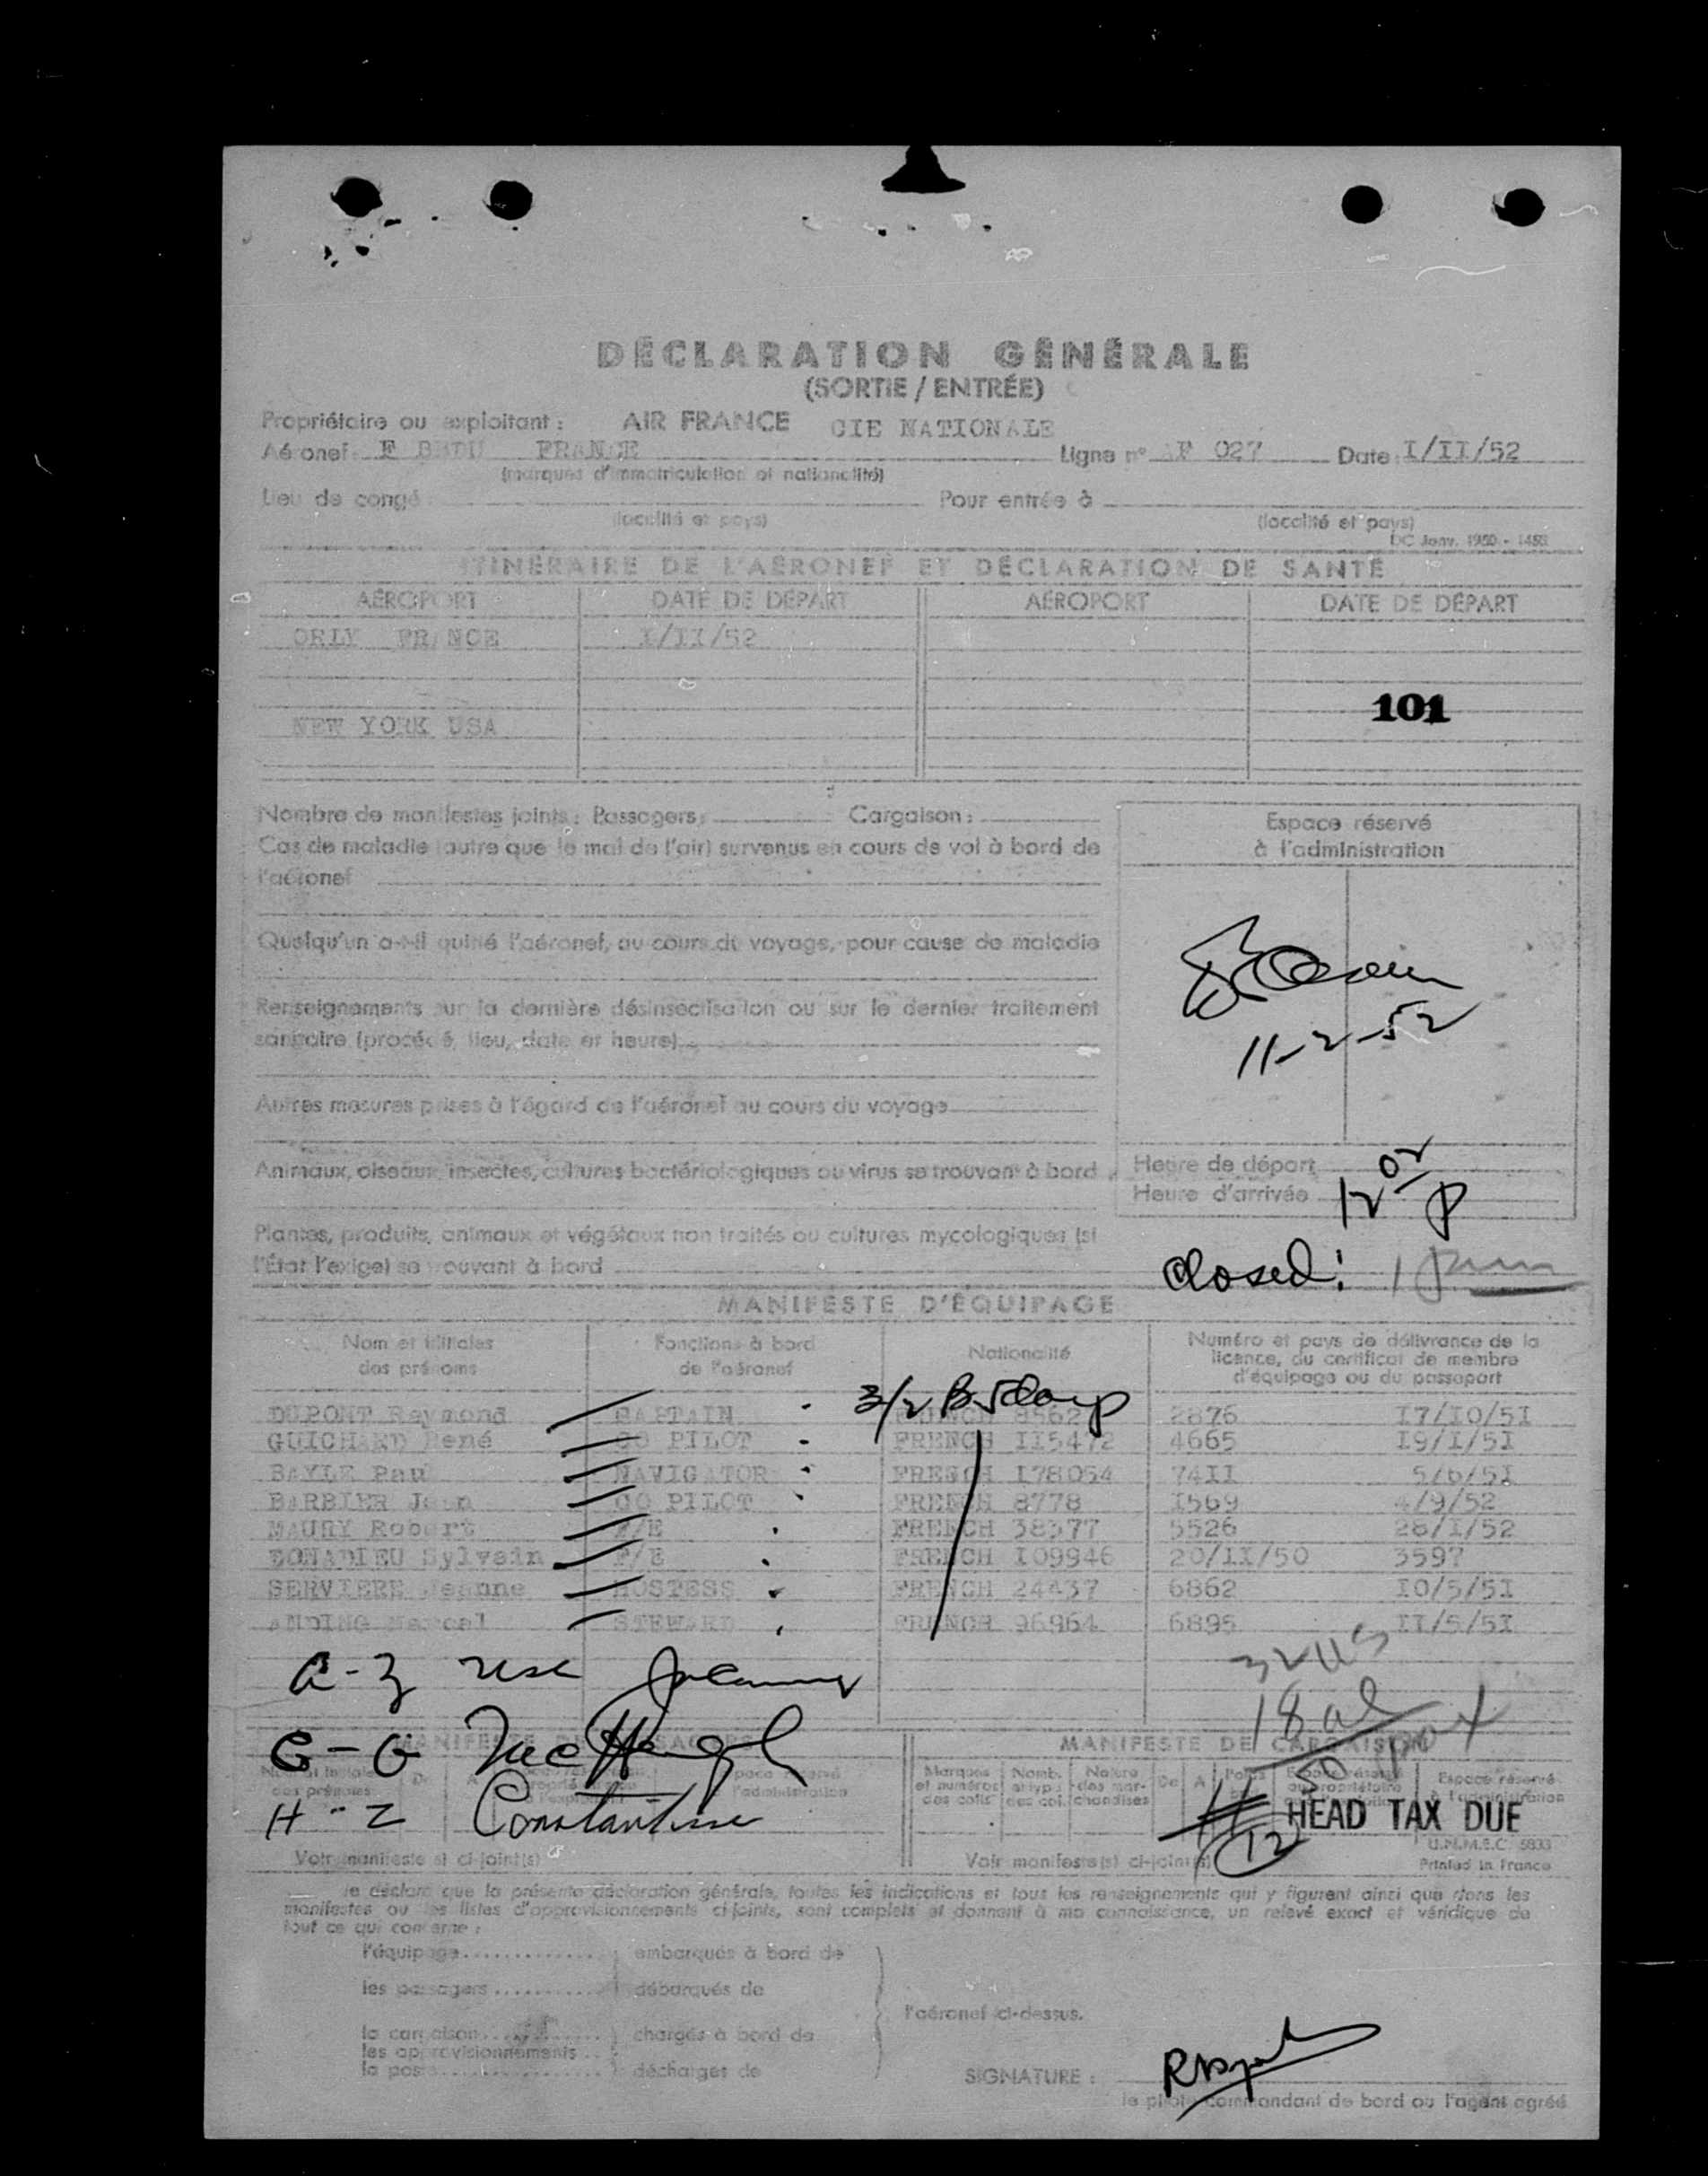 DÉCLARATION GÉNÉRALE
(SORTIE / ENTRÉE)
Propriétaire ou exploitant : AIR FRANCE CIE NATIONALE
Aéronef F FRANCE Ligne n° AF 027 Date I/II/52
(marques d'immatriculation et nationalité)
Lieu de congé Pour entrée à
(localité et pays) (localité et pays)
DC Janv. 1950 -
ITINÉRAIRE DE L'AÉRONEF ET DÉCLARATION DE SANTÉ
AÉROPORT DATE DE DÉPART AÉROPORT DATE DE DÉPART
ORLY FRANCE I/II/52
101
NEW YORK USA
Nombre de manifestes joints : Passagers : Cargaison :
Espace réservé
à l'administration
Cas de maladie (autre que le mal de l'air) survenus en cours de vol à bord de
l'aéronef
Quelqu'un a-t-il quitté l'aéronef, au cours du voyage, pour cause de maladie
11-2-52
Renseignements sur la dernière désinsectisation ou sur le dernier traitement
sanitaire (procédé, lieu, date et heure)
Autres mesures prises à l'égard de l'aéronef au cours du voyage
Animaux, oiseaux, insectes, cultures bactériologiques ou virus se trouvant à bord
Heure de départ
Heure d'arrivée 12 02 P
Plantes, produits, animaux et végétaux non traités ou cultures mycologiques (si
l'État l'exige) se trouvant à bord
Closed: 1
MANIFESTE D'ÉQUIPAGE
Nom et initiales
des prénoms
Fonctions à bord
de l'aéronef
Nationalité
Numéro et pays de délivrance de la
licence, du certificat de membre
d'équipage ou du passeport
3/2 B-5
DUPONT Raymond CAPTAIN FRENCH 2876 I7/I0/5I
GUICHARD René CO PILOT FRENCH II5472 4665 I9/I/5I
BAYLE Paul NAVIGATOR FRENCH I78054 74II 5/6/5I
BARBIER Jean CO PILOT FRENCH 8778 I569 4/9/52
MAURY Robert F/E FRENCH 38377 5526 28/I/52
DONADIEU Sylvain F/E FRENCH I09946 20/II/50 3597
SERVIERE Jeanne HOSTESS FRENCH 24437 6862 I0/5/5I
ANDING Marcel STEWARD FRENCH 96964 6895 II/5/5I
32 US
18 al
50
MANIFESTE DE CARGAISON
Marques et numéros des colis
Nature des marchandises
De A
Espace réservé à l'administration
H - Z
HEAD TAX DUE
12
Voir manifeste(s) ci-joint(s) Voir manifeste(s) ci-joint(s)
Printed in France
Je déclare que la présente déclaration générale, toutes les indications et tous les renseignements qui y figurent ainsi que dans les
manifestes ou les listes d'approvisionnements ci-joints, sont complets et donnent à ma connaissance, un relevé exact et véridique de
tout ce qui concerne :
l'équipage embarqués à bord de
les passagers débarqués de
l'aéronef ci-dessus.
la cargaison chargés à bord de
les approvisionnements
la poste déchargés de
SIGNATURE :
le pilote commandant de bord ou l'agent agréé